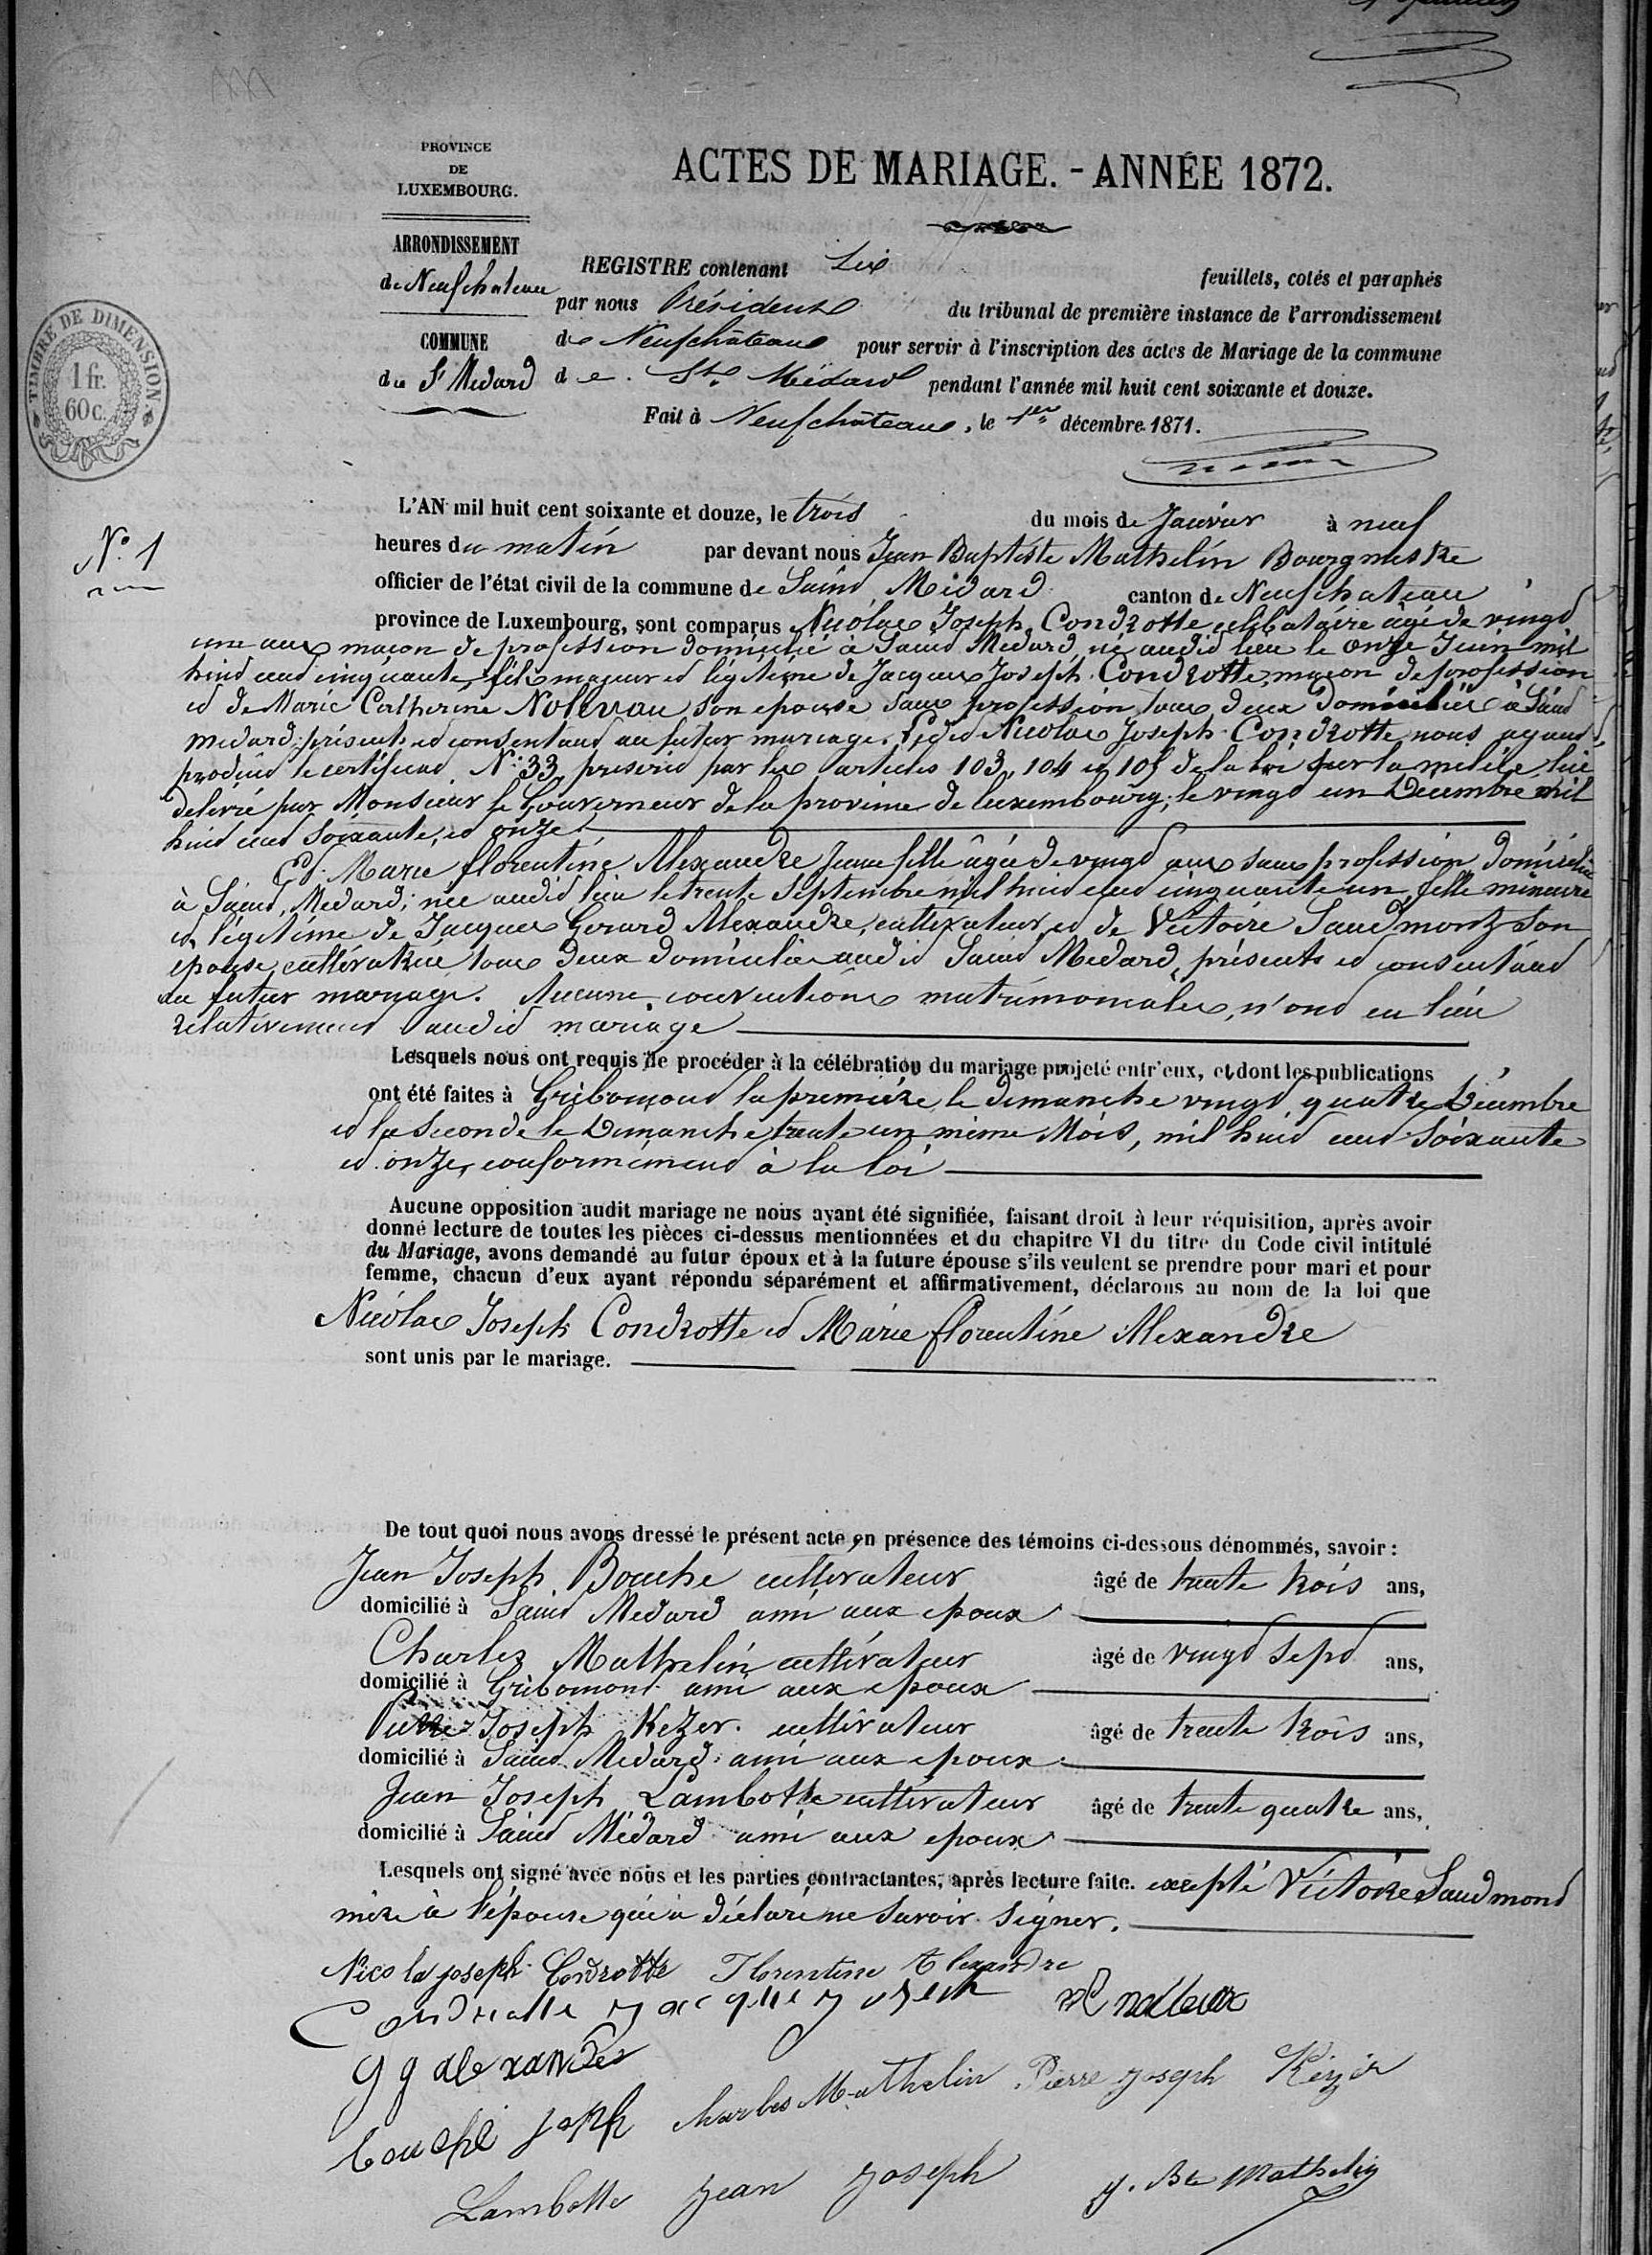 PROVINCE
DE
LUXEMBOURG.
ARRONDISSEMENT
de Neufchateau
COMMUNE
de St Medard
TIMBRE DE DIMENSION
1 fr.
60 c.
ACTES DE MARIAGE. - ANNÉE 1872.
REGISTRE contenant Six feuillets, cotés et paraphés
par nous Président du tribunal de première instance de l'arrondissement
de Neufchâteau pour servir à l'inscription des actes de Mariage de la commune
de St Médard pendant l'année mil huit cent soixante et douze.
Fait à Neufchâteau, le 1er décembre 1871.
N° 1
L'AN mil huit cent soixante et douze, le trois du mois de Janvier à neuf
heures du matin par devant nous Jean Baptiste Mathelin Bourgmestre
officier de l'état civil de la commune de Saint Médard canton de Neufchateau
province de Luxembourg, sont comparus Nicolas Joseph Condrotte celibataire âgé de vingt
une ans maçon de profession domicilié à Saint Medard né audit lieu le onze Juin mil
huit cent cinquante, fils majeur et légitime de Jacques Joseph Condrotte, maçon de profession
et de Marie Catherine Nolevau son epouse sans profession tous deux domiciliés à Saint
Medard, présents et consentant au futur mariage. Ledit Nicolas Joseph Condrotte nous ayant
produit le certificat N° 33 prescrit par les articles 103, 104 et 105 de la loi sur la milice lui
delivré par Monsieur le Gouverneur de la province de luxembourg, le vingt un Décembre mil
huit cent soixante et onze.
Et Marie florentine Alexandre Jeune fille âgée de vingt ans sans profession domiciliée
à Saint Medard, née audit lieu le trente Septembre mil huit cent cinquante un, fille mineure
et légitime de Jacques Gerard Alexandre, cultivateur, et de Victoire Saudmont son
épouse, cultivatrice tous deux domiciliés audit Saint Medard, présents et consentant
au futur mariage. Aucune conventions matrimoniales, n'ont eu lieu
relativement audit mariage
Lesquels nous ont requis de procéder à la célébration du mariage projeté entr'eux, et dont les publications
ont été faites à Gribomont la première le dimanche vingt quatre Décembre
et la seconde le Dimanche trente un même Mois, mil huit cent soixante
et onze, conformément à la loi
Aucune opposition audit mariage ne nous ayant été signifiée, faisant droit à leur réquisition, après avoir
donné lecture de toutes les pièces ci-dessus mentionnées et du chapitre VI du titre du Code civil intitulé
du Mariage, avons demandé au futur époux et à la future épouse s'ils veulent se prendre pour mari et pour
femme, chacun d'eux ayant répondu séparément et affirmativement, déclarons au nom de la loi que
Nicolas Joseph Condrotte et Marie florentine Alexandre
sont unis par le mariage.
De tout quoi nous avons dressé le présent acte en présence des témoins ci-dessous dénommés, savoir :
Jean Joseph Bouché cultivateur âgé de trente trois ans,
domicilié à Saint Medard ami aux epoux
Charles Mathelin cultivateur âgé de vingt sept ans,
domicilié à Gribomont ami aux epoux
Pierre Joseph Kezer cultivateur âgé de trente trois ans,
domicilié à Saint Medard ami aux epoux
Jean Joseph Lambotte cultivateur âgé de trente quatre ans,
domicilié à Saint Médard ami aux epoux
Lesquels ont signé avec nous et les parties contractantes, après lecture faite. excepté Victoire Saudmont
mère à l'épouse qui à déclaré ne savoir signer.
Nicola joseph Condrotte Florentine Alexandre
Condrotte jacque joseph
g g alexandre
bouché joseph charles Mathelin Pierre joseph Kézer
Lambotte jean joseph J. Bte Mathelin